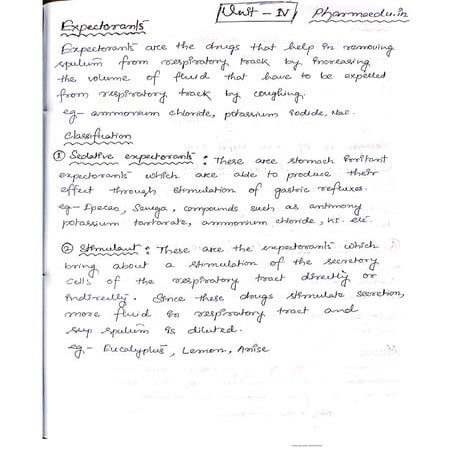 Unit - IV pharmaedu.in
Expectorants
Expectorants are the drugs that help in removing
sputum from respiratory track by increasing
the volume of fluid that have to be expelled
from respiratory track by coughing.
eg- ammonium chloride, potassium iodide, NaI.
Classification
① Sedative expectorants : These are stomach irritant
expectorants which are able to produce their
effect through stimulation of gastric refluxes.
eg- Ipecac, Senega, compounds such as antimony
potassium tartarate, ammonium chloride, KI. etc.
② Stimulant : These are the expectorants which
bring about a stimulation of the secretory
cells of the respiratory tract directly or
indirectly. Since these drugs stimulate secretion,
more fluid in respiratory tract and
sputum is diluted.
eg.- Eucalyptus, Lemon, Anise